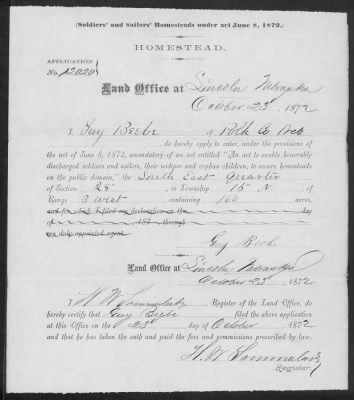 (Soldiers' and Sailors' Homesteads under act June 8, 1872.)
HOMESTEAD.
APPLICATION
No. 12020
Land Office at Lincoln Nebraska
October 23d 1872
I, Guy Beebe of Polk Co Neb
, do hereby apply to enter, under the provisions of
the act of June 8, 1872, amendatory of an act entitled "An act to enable honorably
discharged soldiers and sailors, their widows and orphan children, to secure homesteads
on the public domain," the South East quarter
of Section 28, in Township 15 N of
Range 3 West, containing 160 acres,
and for which I filed my declaration on the day
of 187 through
my duly appointed agent.
Guy Beebe
Land Office at Lincoln Nebraska
October 23d, 1872
I, Register of the Land Office, do
hereby certify that Guy Beebe filed the above application
at this Office on the 23d day of October 1872
and that he has taken the oath and paid the fees and commissions prescribed by law.
Register.